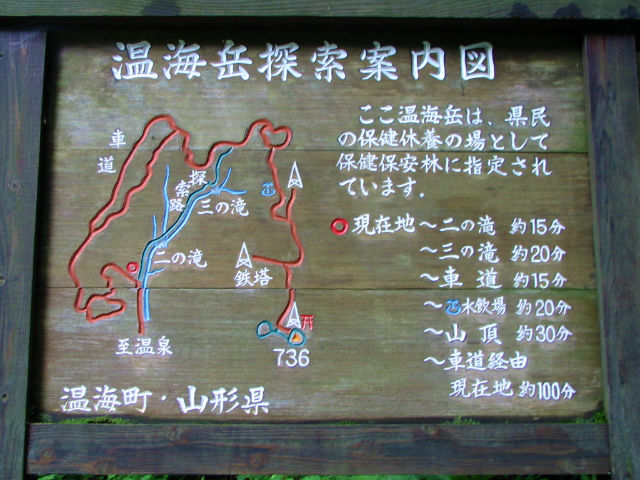 温海岳探索案内図
ここ温海岳は、県民
の保健休養の場として
保健保安林に指定され
ています.
現在地～二の滝 約15分
～三の滝 約20分
～車道 約15分
～水飲場 約20分
～山頂 約30分
～車道経由
現在地 約100分
車道
探索路
三の滝
二の滝
鉄塔
至温泉
736
温海町・山形県